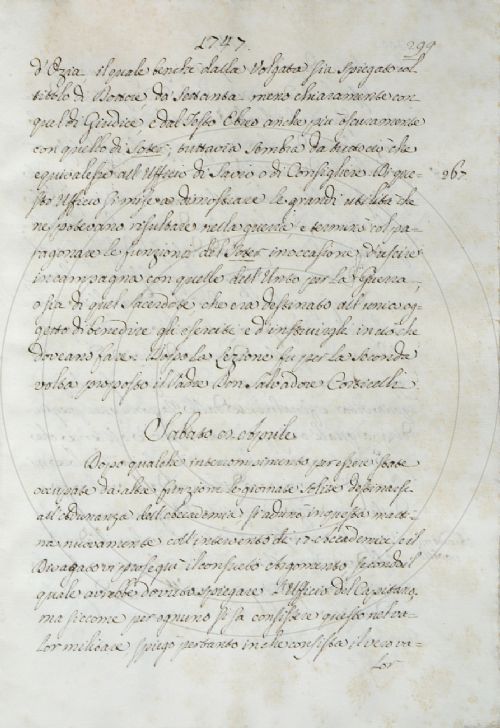 1747.
299
d'Ozia il quale benche dalla Volgata sia spiegato col
titolo di Dottore, da Settanta meno chiaramente con
quel di Giudice, e dal Testo Ebreo anche piu oscuramente
con quello di Soter, tuttavia sembra da dirsi che
equivalesse all'Ufficio di Savio o di Consigliere. Di que=
267
sto Ufficio si mise a dimostrare le grandi utilità che
ne potevano risultare nella guerra, e terminò col pa=
ragonare le funzioni del Soter in occasione d'uscire
in campagna con quelle dell'Unto per la guerra,
o sia di quel Sacerdote che era destinato all'unico og=
getto di benedire gli eserciti e d'instruirgli in ciò che
doveano fare. Dopo la Lezione fu per la seconda
volta proposto il Padre Don Salvadore Corticelli.
Sabato Aprile
Dopo qualche interrompimento per essere state
occupate da altre funzioni le giornate solite destinarsi
all'Adunanza dell'Accademia, si adunò in questa matti=
na nuovamente coll'intervento di 12 Accademici, e il
proseguì il consueto Argomento secondo il
quale avrebbe dovuto spiegare l'Ufficio del Capitano,
ma siccome per ognuno si sa consistere questo nel va=
lor militare spiegò pertanto in che consista il vero va=
lor